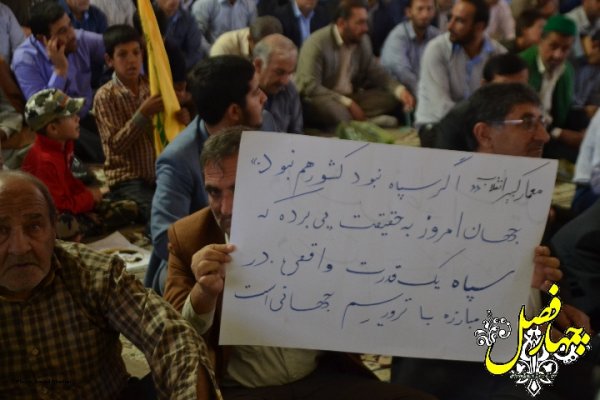 معمار کبیر انقلاب: «اگر سپاه نبود کشور هم نبود.»
جهان امروز به حقیقت می برد که
سپاه یک قدرت واقعی در
مبارزه با تروریسم جهانی است
چهارفصل